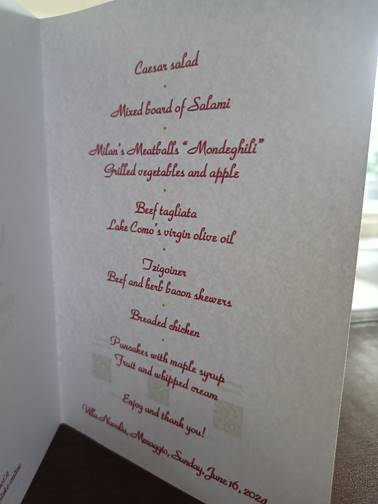 Caesar salad
Mixed board of Salami
Milan's Meatballs "Mondeghili"
Grilled vegetables and apple
Beef tagliata
Lake Como's virgin olive oil
Tzigoiner
Beef and herb bacon skewers
Breaded chicken
Pancakes with maple syrup
Fruit and whipped cream
Enjoy and thank you!
Villa Menaggio, Sunday, June 16, 2024